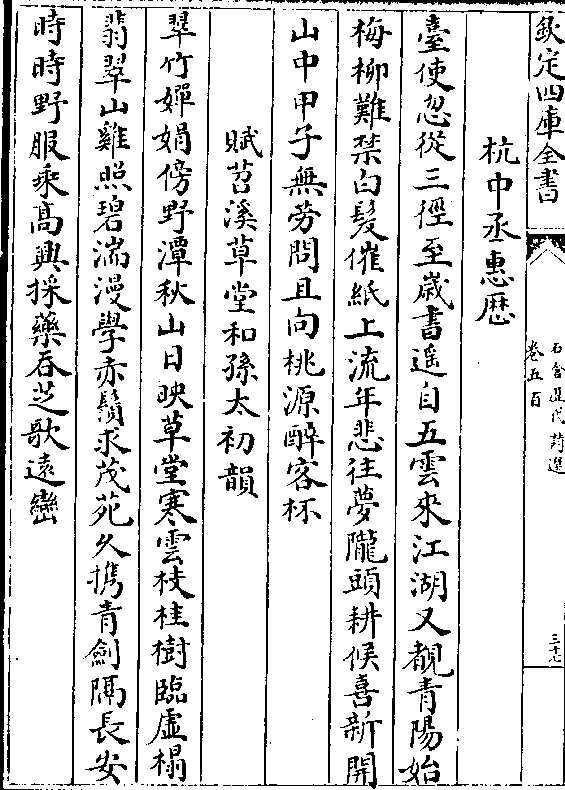 欽定四庫全書
石倉歷代詩選
卷五百
三十七
杭中丞惠厯
臺使忽從三徑至歲書遥自五雲來江湖又覩青陽始
梅柳難禁白髮催紙上流年悲往夢隴頭耕候喜新開
山中甲子無勞問且向桃源醉客杯
賦苕溪草堂和孫太初韻
翠竹嬋娟傍野潭秋山日映草堂寒雲枝桂樹臨虚榻
翡翠山雞照碧湍漫學赤鬚求茂苑久携青劍隔長安
時時野服乘髙興採藥吞芝歌遠巒